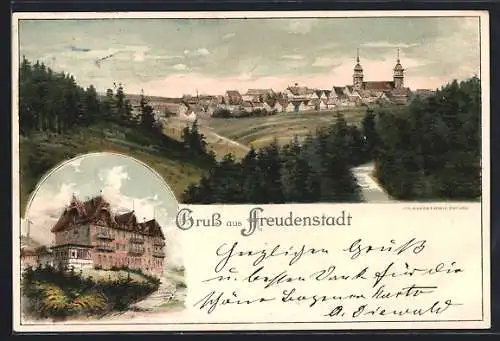 Gruß aus Freudenstadt
Herzlichen Gruß
u. besten Dank für die
schöne Karte
A. Diewald